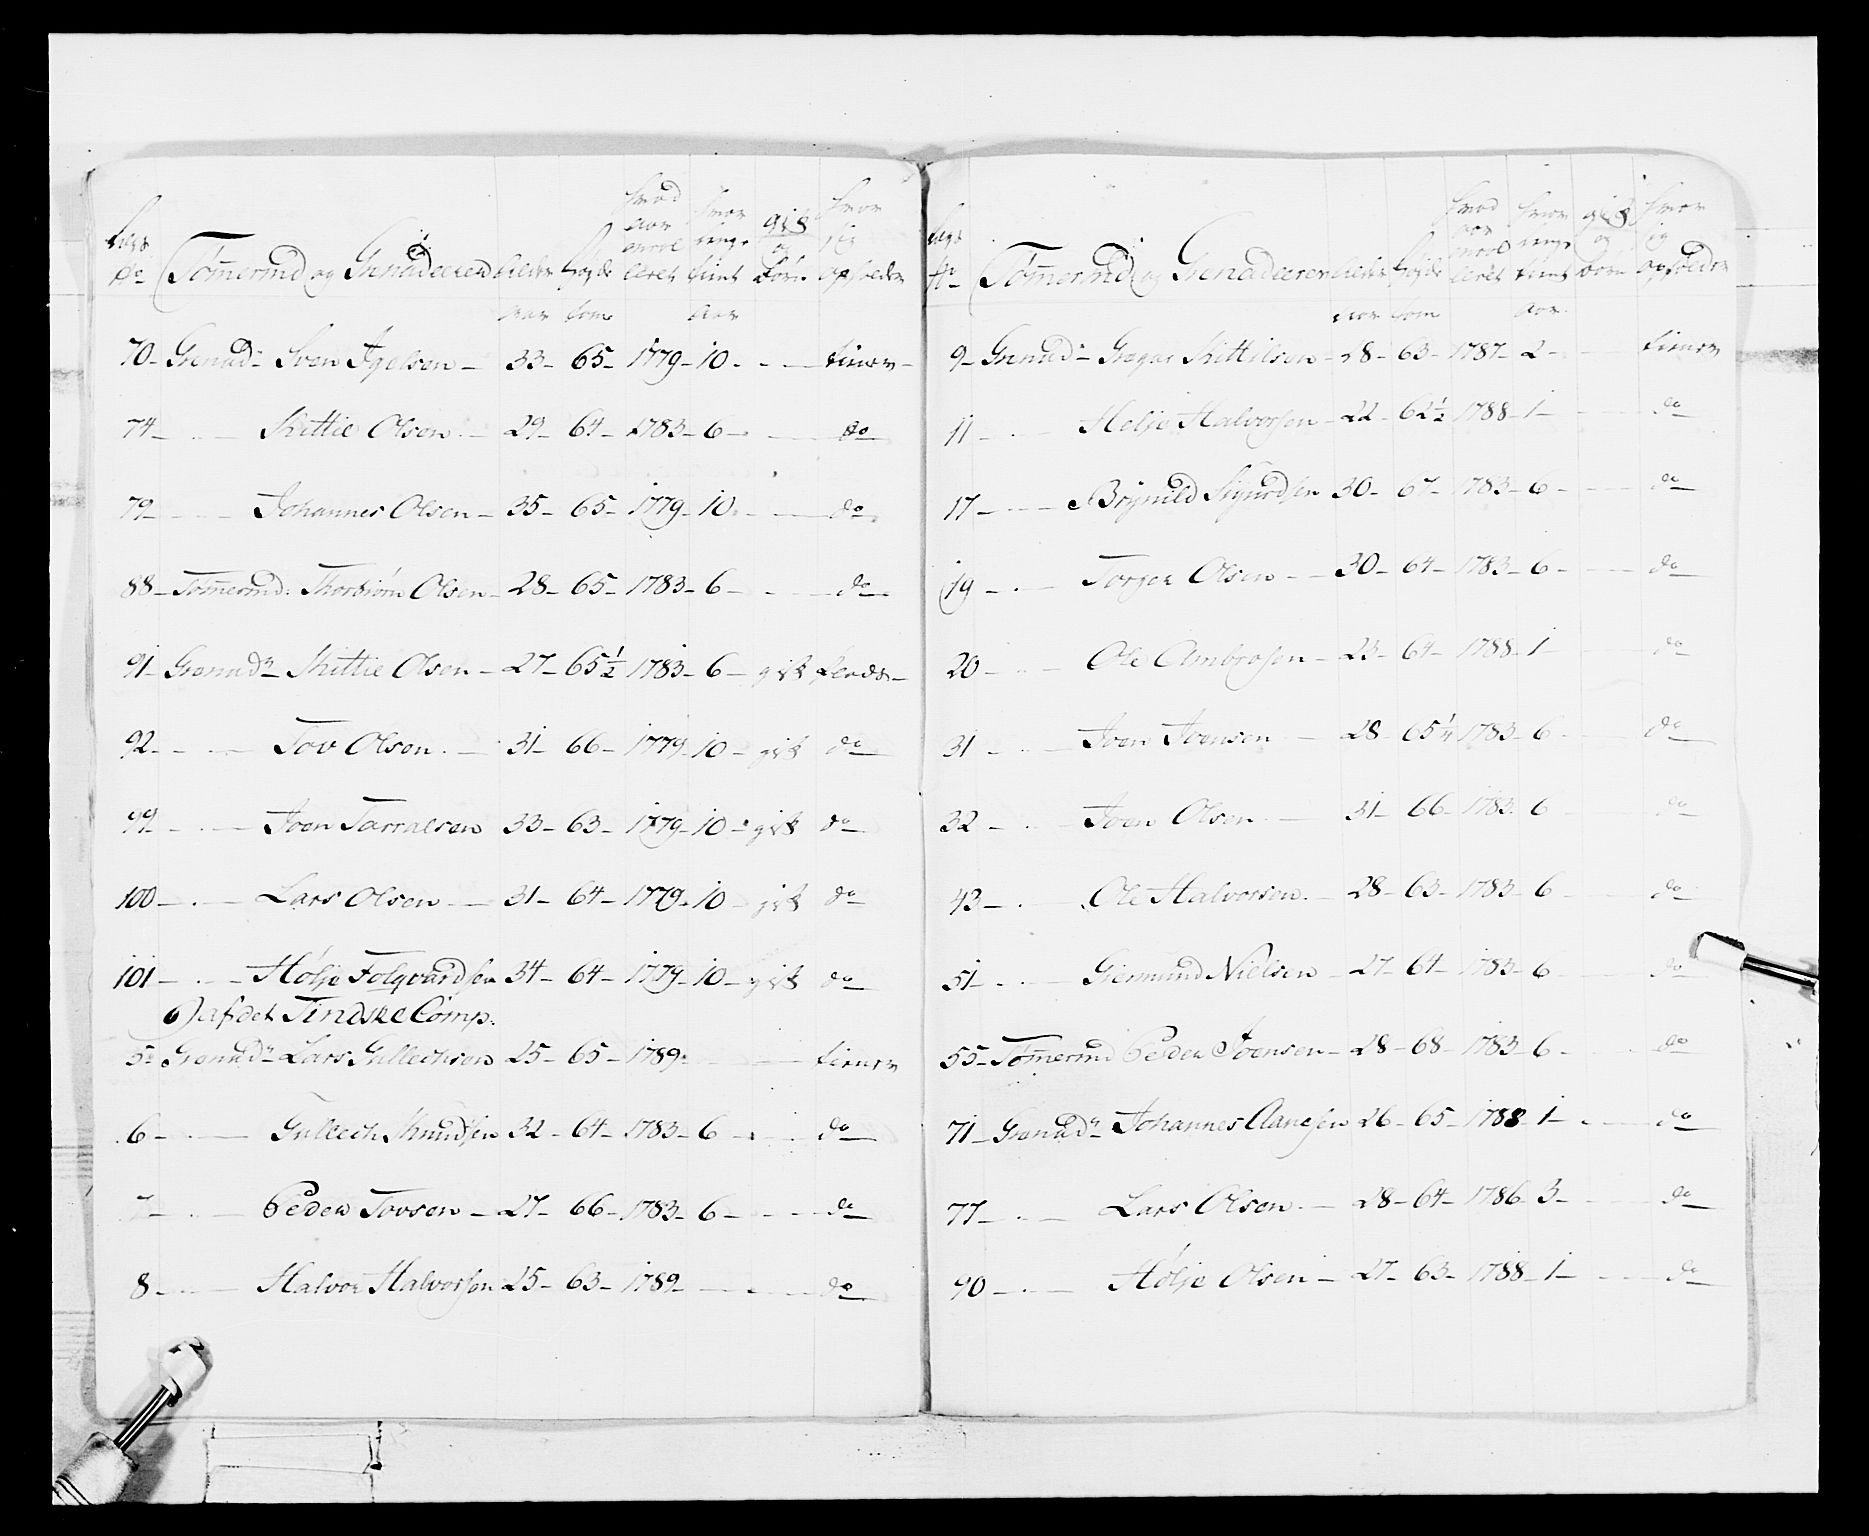 Lægs No Tømermd og Grenadeerer Alder Højde hvad aar enrol leret hvor længe tient gift og Børn hvor sig opholder
aar tom. aar
70 – Grenadr Sven Igelsen – 33 – 65 – 1779 – 10 – tiener –
74 – Kittil Olsen – 29 – 64 – 1783 – 6 – do
79 – Johannes Olsen – 35 – 65 – 1779 – 10 – do
88 – Tømermd. Thorbiørn Olsen – 28 – 65 – 1783 – 6 – do
91 – Grenadr Kittil Olsen – 27 – 65 1/2 1783 – 6 – gift
92 – Tov Olsen – 31 – 66 – 1779 – 10 – gift do
99 – Joen Tarralsen 33 – 63 – 1779 – 10 – gift do
100 – Lars Olsen – 31 – 64 – 1779 – 10 – gift do
101 – Hølje Folqvardsen 34 – 64 – 1779 – 10 – gift do
af det Tindske Comp.
5 Grenadr Lars Gullechsen 25 – 65 – 1789 – tiener
6 – Gullech Knudsen 32 – 64 – 1783 – 6 – do
7 – Peder Tovsen – 27 – 66 – 1783 – 6 – do
8 – Halvor Halvorsen 25 – 63 – 1789 – do
Lægs No Tømermd og Grenadeerer Alder Højde hvad aar enrol leret hvor længe tient gift og børn hvor sig opholder
aar tom aar
9 – Grenadr Gregar Kittilsen – 28 – 63 – 1787 – 2 – tiener
11 – Helje Halvorsen – 22 – 62 1/2 1788 – 1 – do
17 – Brynild Sigurdsen 30 – 67 – 1783 – 6 – do
19 – Torger Olsen – 30 – 64 – 1783 – 6 – do
20 – Ole Ambrosen – 23 – 64 – 1788 – 1 – do
31 – Joen Joensen – 28 – 65 1/4 1783 – 6 – do
32 – Joen Olsen – 31 – 66 – 1783 – 6 do
43 – Ole Halvorsen – 28 – 63 – 1783 – 6 do
51 – Giermund Nielsen – 27 – 64 – 1783 – 6 do
55 – Tømermd Peder Joensen – 28 – 68 – 1783 – 6 – do
71 – Grenadr Johannes Aanesen 26 – 65 – 1788 – 1 – do
77 – Lars Olsen – 28 – 64 – 1786 – 3 – do
90 – Hølje Olsen – 27 – 63 – 1788 – 1 – do